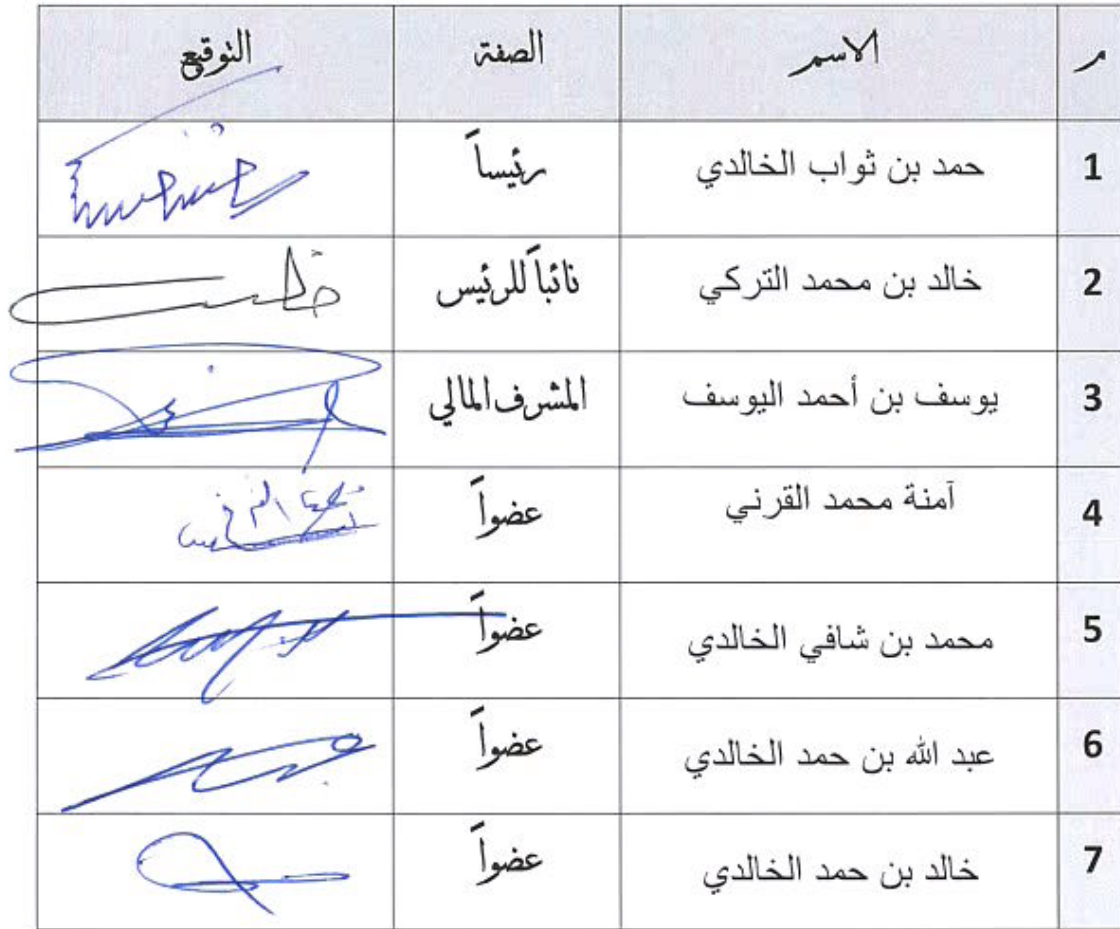 م الاسم الصفة التوقيع
1 حمد بن ثواب الخالدي رئيساً
2 خالد بن محمد التركي نائباً للرئيس
3 يوسف بن أحمد اليوسف المشرف المالي
4 آمنة محمد القرني عضواً
5 محمد بن شافي الخالدي عضواً
6 عبد الله بن حمد الخالدي عضواً
7 خالد بن حمد الخالدي عضواً